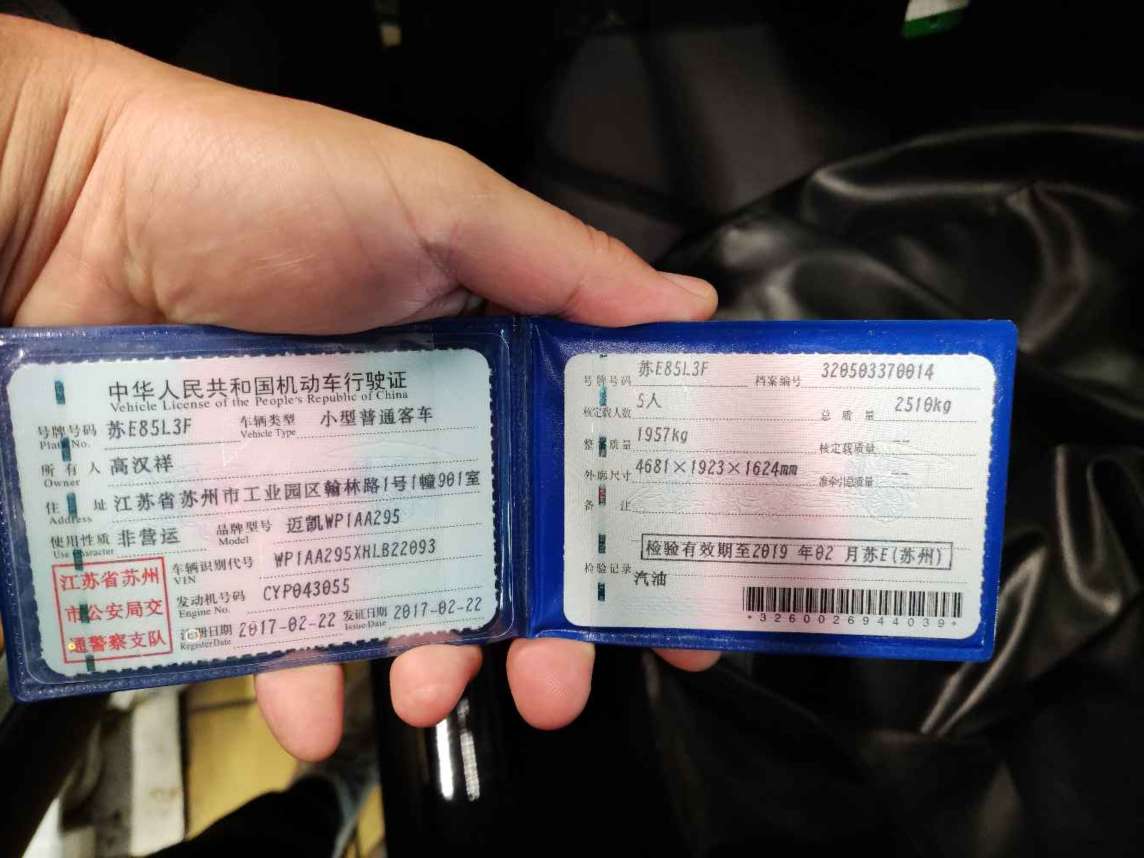 中华人民共和国机动车行驶证
Vehicle License of the People's Republic of China
号牌号码 苏E85L3F 车辆类型 小型普通客车
Plate No. Vehicle Type
所有人 高汉祥
Owner
住址 江苏省苏州市工业园区翰林路1号1幢901室
Address
使用性质 非营运 品牌型号 迈凯WP1AA295
Use Character Model
江苏省苏州
市公安局交
通警察支队
车辆识别代号 WP1AA295XHLB22093
VIN
发动机号码 CYP043055
Engine No.
注册日期 2017-02-22 发证日期 2017-02-22
Register Date Issue Date
号牌号码 苏E85L3F 档案编号 320503370014
核定载人数 5人 总质量 2510kg
整备质量 1957kg 核定载质量 --
外廓尺寸 4681×1923×1624mm 准牵引总质量 --
备注
检验有效期至2019年02月苏E(苏州)
检验记录
汽油
*3260026944039*